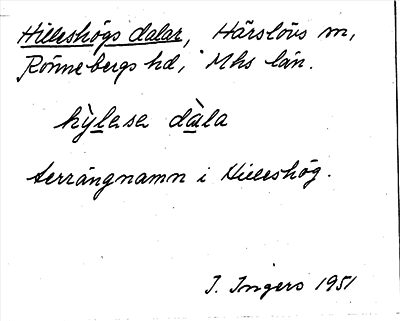 Hilleshögs dalar, Härslövs m,
Rönnebergs hd, Mhs län.
hỳlasa dàla
terrängnamn i Hilleshög.
I. Ingers 1951